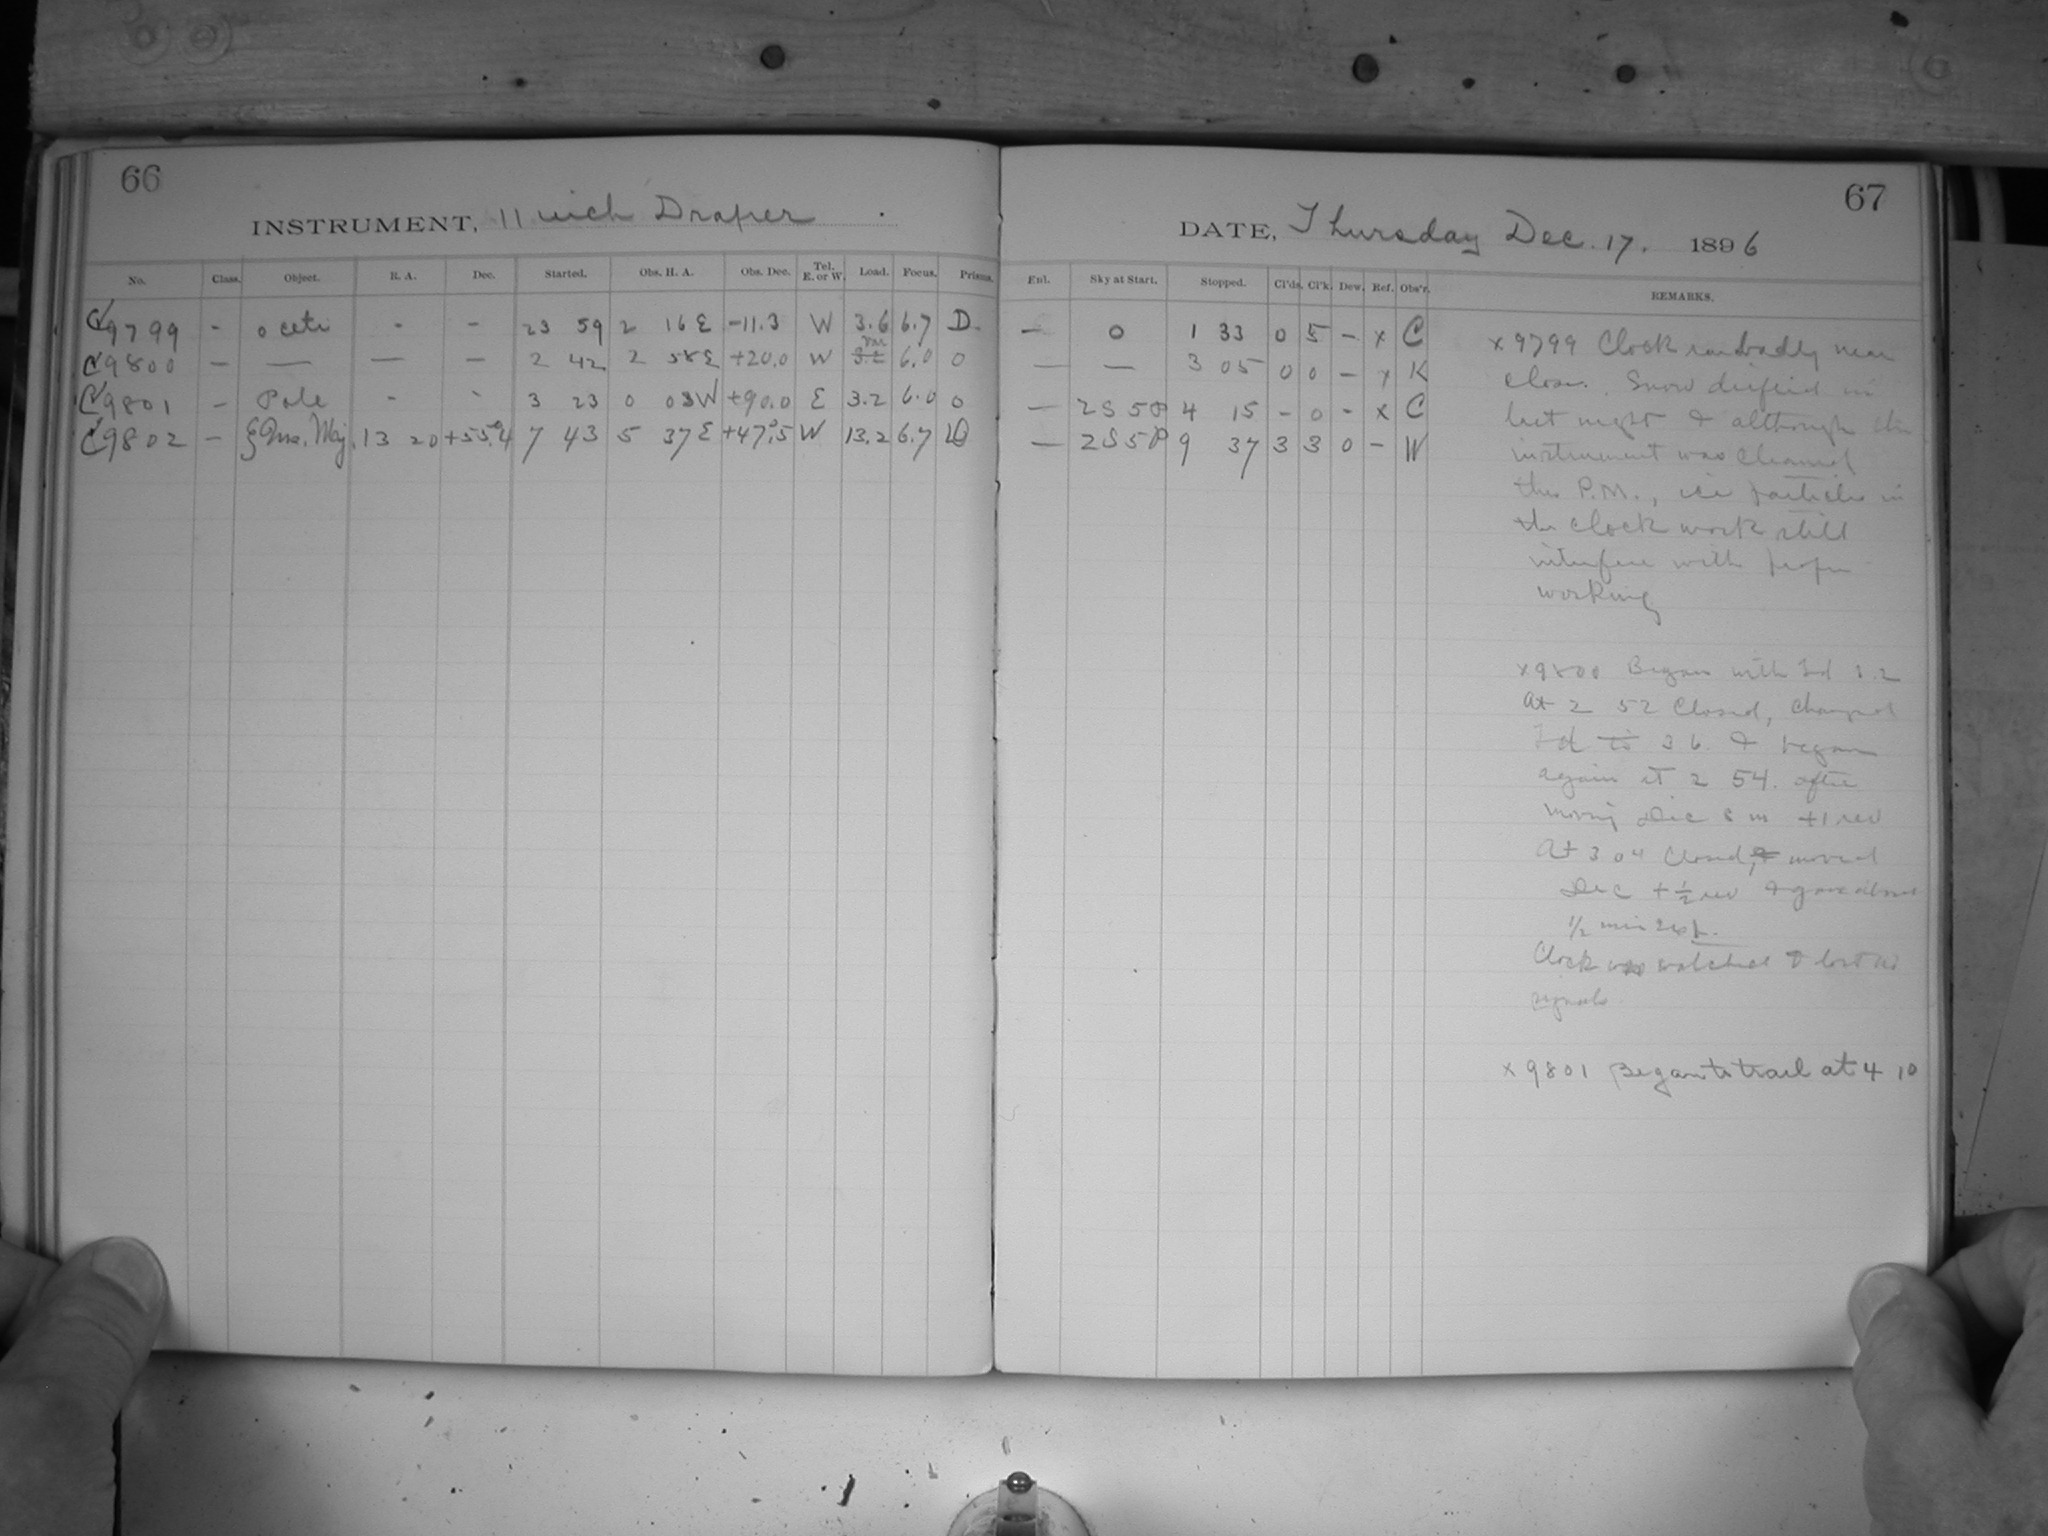 66
INSTRUMENT, 11 inch Draper
No. Class. Object. R. A. Dec. Started. Obs. H. A. Obs. Dec. Tel. E. or W. Load. Focus. Prisms.
C 9799 - o Ceti - - 23 59 2 16 E -11.3 W 3.6 6.7 D
C 9800 - — — — 2 42 2 58 E +20.0 W 3.2 var 6.0 0
C 9801 - Pole - - 3 23 0 03 W +90.0 E 3.2 6.0 0
C 9802 - ξ Urs. Maj. 13 20 +55°.4 7 43 5 37 E +47°.5 W 13.2 6.7 D
67
DATE, Thursday Dec. 17. 1896
Enl. Sky at Start. Stopped. Cl'ds. Cl'k. Dew. Ref. Obs'r. REMARKS.
— 0 1 33 0 5 - x C
— — 3 05 0 0 - x K
— 2S5P 4 15 - 0 - x C
— 2S5P 9 37 3 3 0 - W
x 9799 Clock ran badly near
close. Snow drifted in
last night & although the
instrument was cleaned
this P.M., ice particles in
the clock work still
interfere with proper
working
x 9800 Began with Ld 3.2
At 2 52 Closed, changed
Ld to 3 6 & began
again at 2 54. after
moving Dec s m +1 rev
At 3 04 Closed, & moved
Dec + ½ rev & gave about
1/2 min exp.
Clock was watched & lost no
signals.
x 9801 Began to trail at 4 10